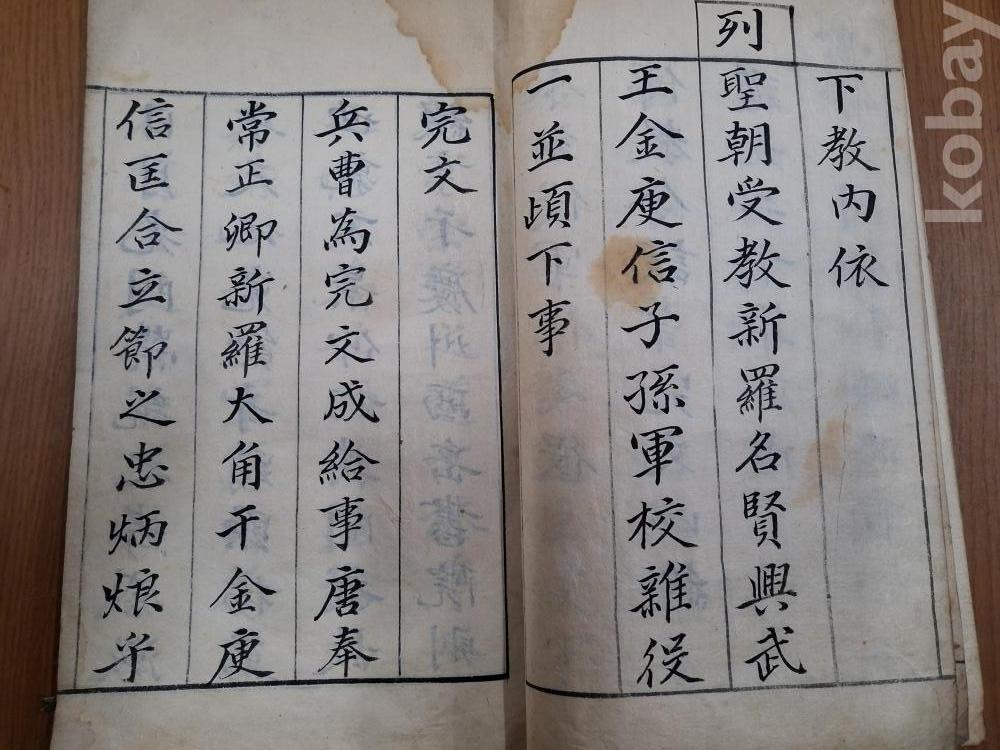 下教內依
列
聖朝受教新羅名賢興武
王金庾信子孫軍校雜役
一並頉下事
完文
兵曹為完文成給事唐奉
常正卿新羅大角干金庾
信匡合立節之忠炳烺乎
kobay